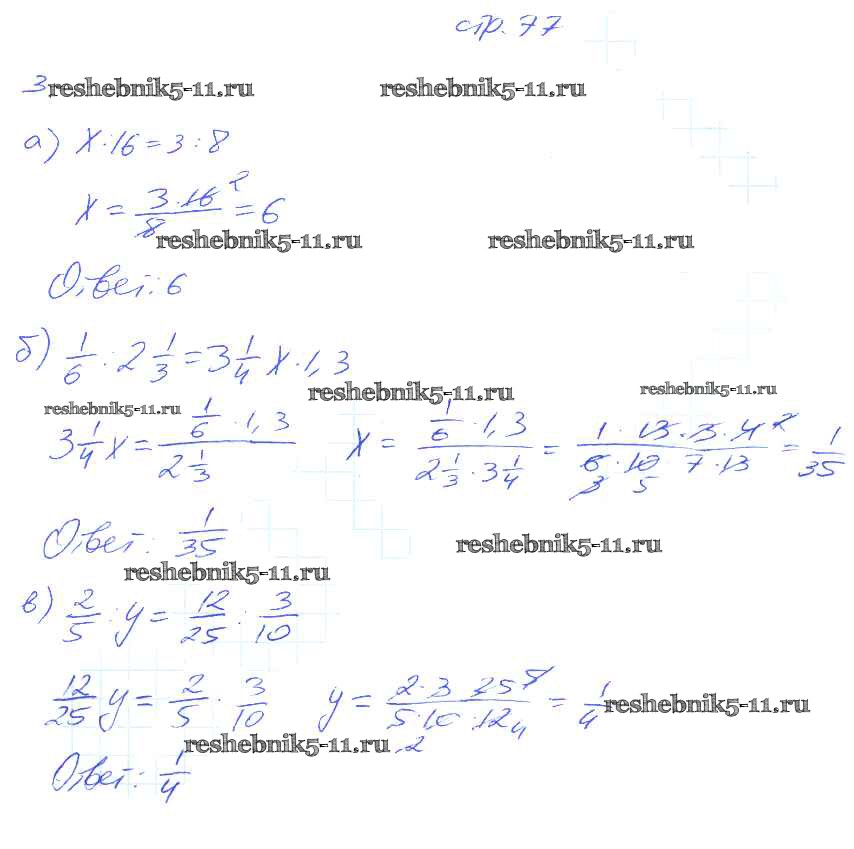 стр. 77
3 reshebnik5-11.ru reshebnik5-11.ru
а) x : 16 = 3 : 8
x = 3 · 16 2 / 8 = 6
reshebnik5-11.ru reshebnik5-11.ru
Ответ: 6
б) 1/6 : 2 1/3 = 3 1/4 x · 1,3
reshebnik5-11.ru reshebnik5-11.ru reshebnik5-11.ru
3 1/4 x = 1/6 · 1,3 / 2 1/3 x = 1/6 · 1,3 / 2 1/3 · 3 1/4 = 1 · 13 · 3 · 4 2 / 6 3 · 10 5 · 7 · 13 = 1/35
Ответ: 1/35 reshebnik5-11.ru
reshebnik5-11.ru
в) 2/5 : y = 12/25 : 3/10
12/25 y = 2/5 · 3/10 y = 2 · 3 · 25 5 / 5 · 10 2 · 12 4 = 1/4 reshebnik5-11.ru
reshebnik5-11.ru
Ответ: 1/4